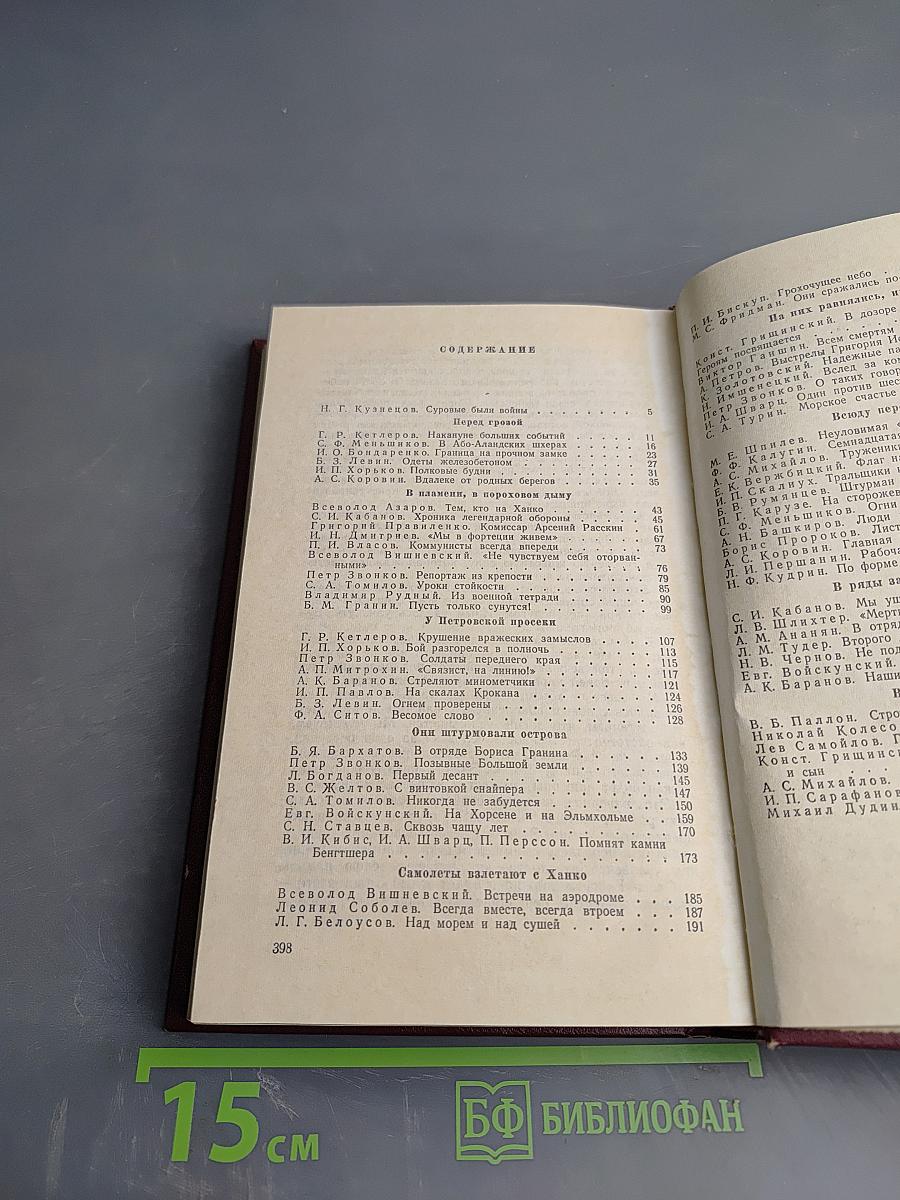 СОДЕРЖАНИЕ
Н. Г. Кузнецов. Суровые были войны . . . . . . . . 5
Перед грозой
Г. Р. Кетлеров. Накануне больших событий . . . . . 11
С. Ф. Меньшиков. В Або-Аландских шхерах . . . . . 16
И. О. Бондаренко. Граница на прочном замке . . . . 23
Б. З. Левин. Одеты железобетоном . . . . . . . . 27
И. П. Хорьков. Полковые будни . . . . . . . . . 31
А. С. Коровин. Вдалеке от родных берегов . . . . . 35
В пламени, в пороховом дыму
Всеволод Азаров. Тем, кто на Ханко . . . . . . . 43
С. И. Кабанов. Хроника легендарной обороны . . . . 45
Григорий Правиленко. Комиссар Арсений Расскин . 61
И. Н. Дмитриев. «Мы в фортеции живем» . . . . . 67
П. И. Власов. Коммунисты всегда впереди . . . . . 73
Всеволод Вишневский. «Не чувствуем себя оторван-
ными» . . . . . . . . . . . . . . . . . 76
Петр Звонков. Репортаж из крепости . . . . . . . 79
С. А. Томилов. Уроки стойкости . . . . . . . . . 85
Владимир Рудный. Из военной тетради . . . . . . 90
Б. М. Гранин. Пусть только сунутся! . . . . . . . 99
У Петровской просеки
Г. Р. Кетлеров. Крушение вражеских замыслов . . . . 107
И. П. Хорьков. Бой разгорелся в полночь . . . . . 113
Петр Звонков. Солдаты переднего края . . . . . . 115
А. П. Митрохин. «Связист, на линию!» . . . . . . 117
А. К. Баранов. Стреляют минометчики . . . . . . 121
И. П. Павлов. На скалах Крокана . . . . . . . . 124
Б. З. Левин. Огнем проверены . . . . . . . . . 126
Ф. А. Ситов. Весомое слово . . . . . . . . . . 128
Они штурмовали острова
Б. Я. Бархатов. В отряде Бориса Гранина . . . . . 133
Петр Звонков. Позывные Большой земли . . . . . 139
Л. Богданов. Первый десант . . . . . . . . . . 145
В. С. Желтов. С винтовкой снайпера . . . . . . . 147
С. А. Томилов. Никогда не забудется . . . . . . . 150
Евг. Войскунский. На Хорсене и на Эльмхольме . . 159
С. Н. Ставцев. Сквозь чащу лет . . . . . . . . . 170
В. И. Кибис, И. А. Шварц, П. Перссон. Помнят камни
Бенгтшера . . . . . . . . . . . . . . . 173
Самолеты взлетают с Ханко
Всеволод Вишневский. Встречи на аэродроме . . . 185
Леонид Соболев. Всегда вместе, всегда втроем . . . 187
Л. Г. Белоусов. Над морем и над сушей . . . . . . . 191
398
П. И. Бискуп. Грохочущее небо .
М. С. Фридман. Они сражались
На них равнялись,
Конст. Грищинский. В дозоре
Героям посвящается . . . . .
Виктор Ганшин. Всем смертям
А. Петров. Выстрелы Григория
К. Золотовский. Надежные
Н. Имшенецкий. Вслед за
Петр Звонков. О таких
И. А. Шварц. Один против
С. А. Турин. Морское счастье
Всюду
М. Е. Шпилев. Неуловимая
Ф. Ф. Калугин.
А. С. Михайлов.
Е. К. Вержбицкий. Флаг
И. П. Скалиух. Тральщики
Б. В. Румянцев. Штурман
П. Г. Карузе. На
С. Ф. Меньшиков. Огни
А. Н. Башкиров. Люди
Борис Пророков.
А. С. Коровин. Главная
Л. И. Першанин.
Н. Ф. Кудрин. По форме
В ряды
С. И. Кабанов. Мы
Л. В. Шлихтер.
А. М. Ананян. В
Л. М. Тудер. Второго
Н. В. Чернов. Не
Евг. Войскунский.
А. К. Баранов.
В. Б. Паллон.
Николай
Лев Самойлов.
Конст.
и сын . . .
А. С. Михайлов.
И. П.
Михаил
15 см
БФ БИБЛИОФАН